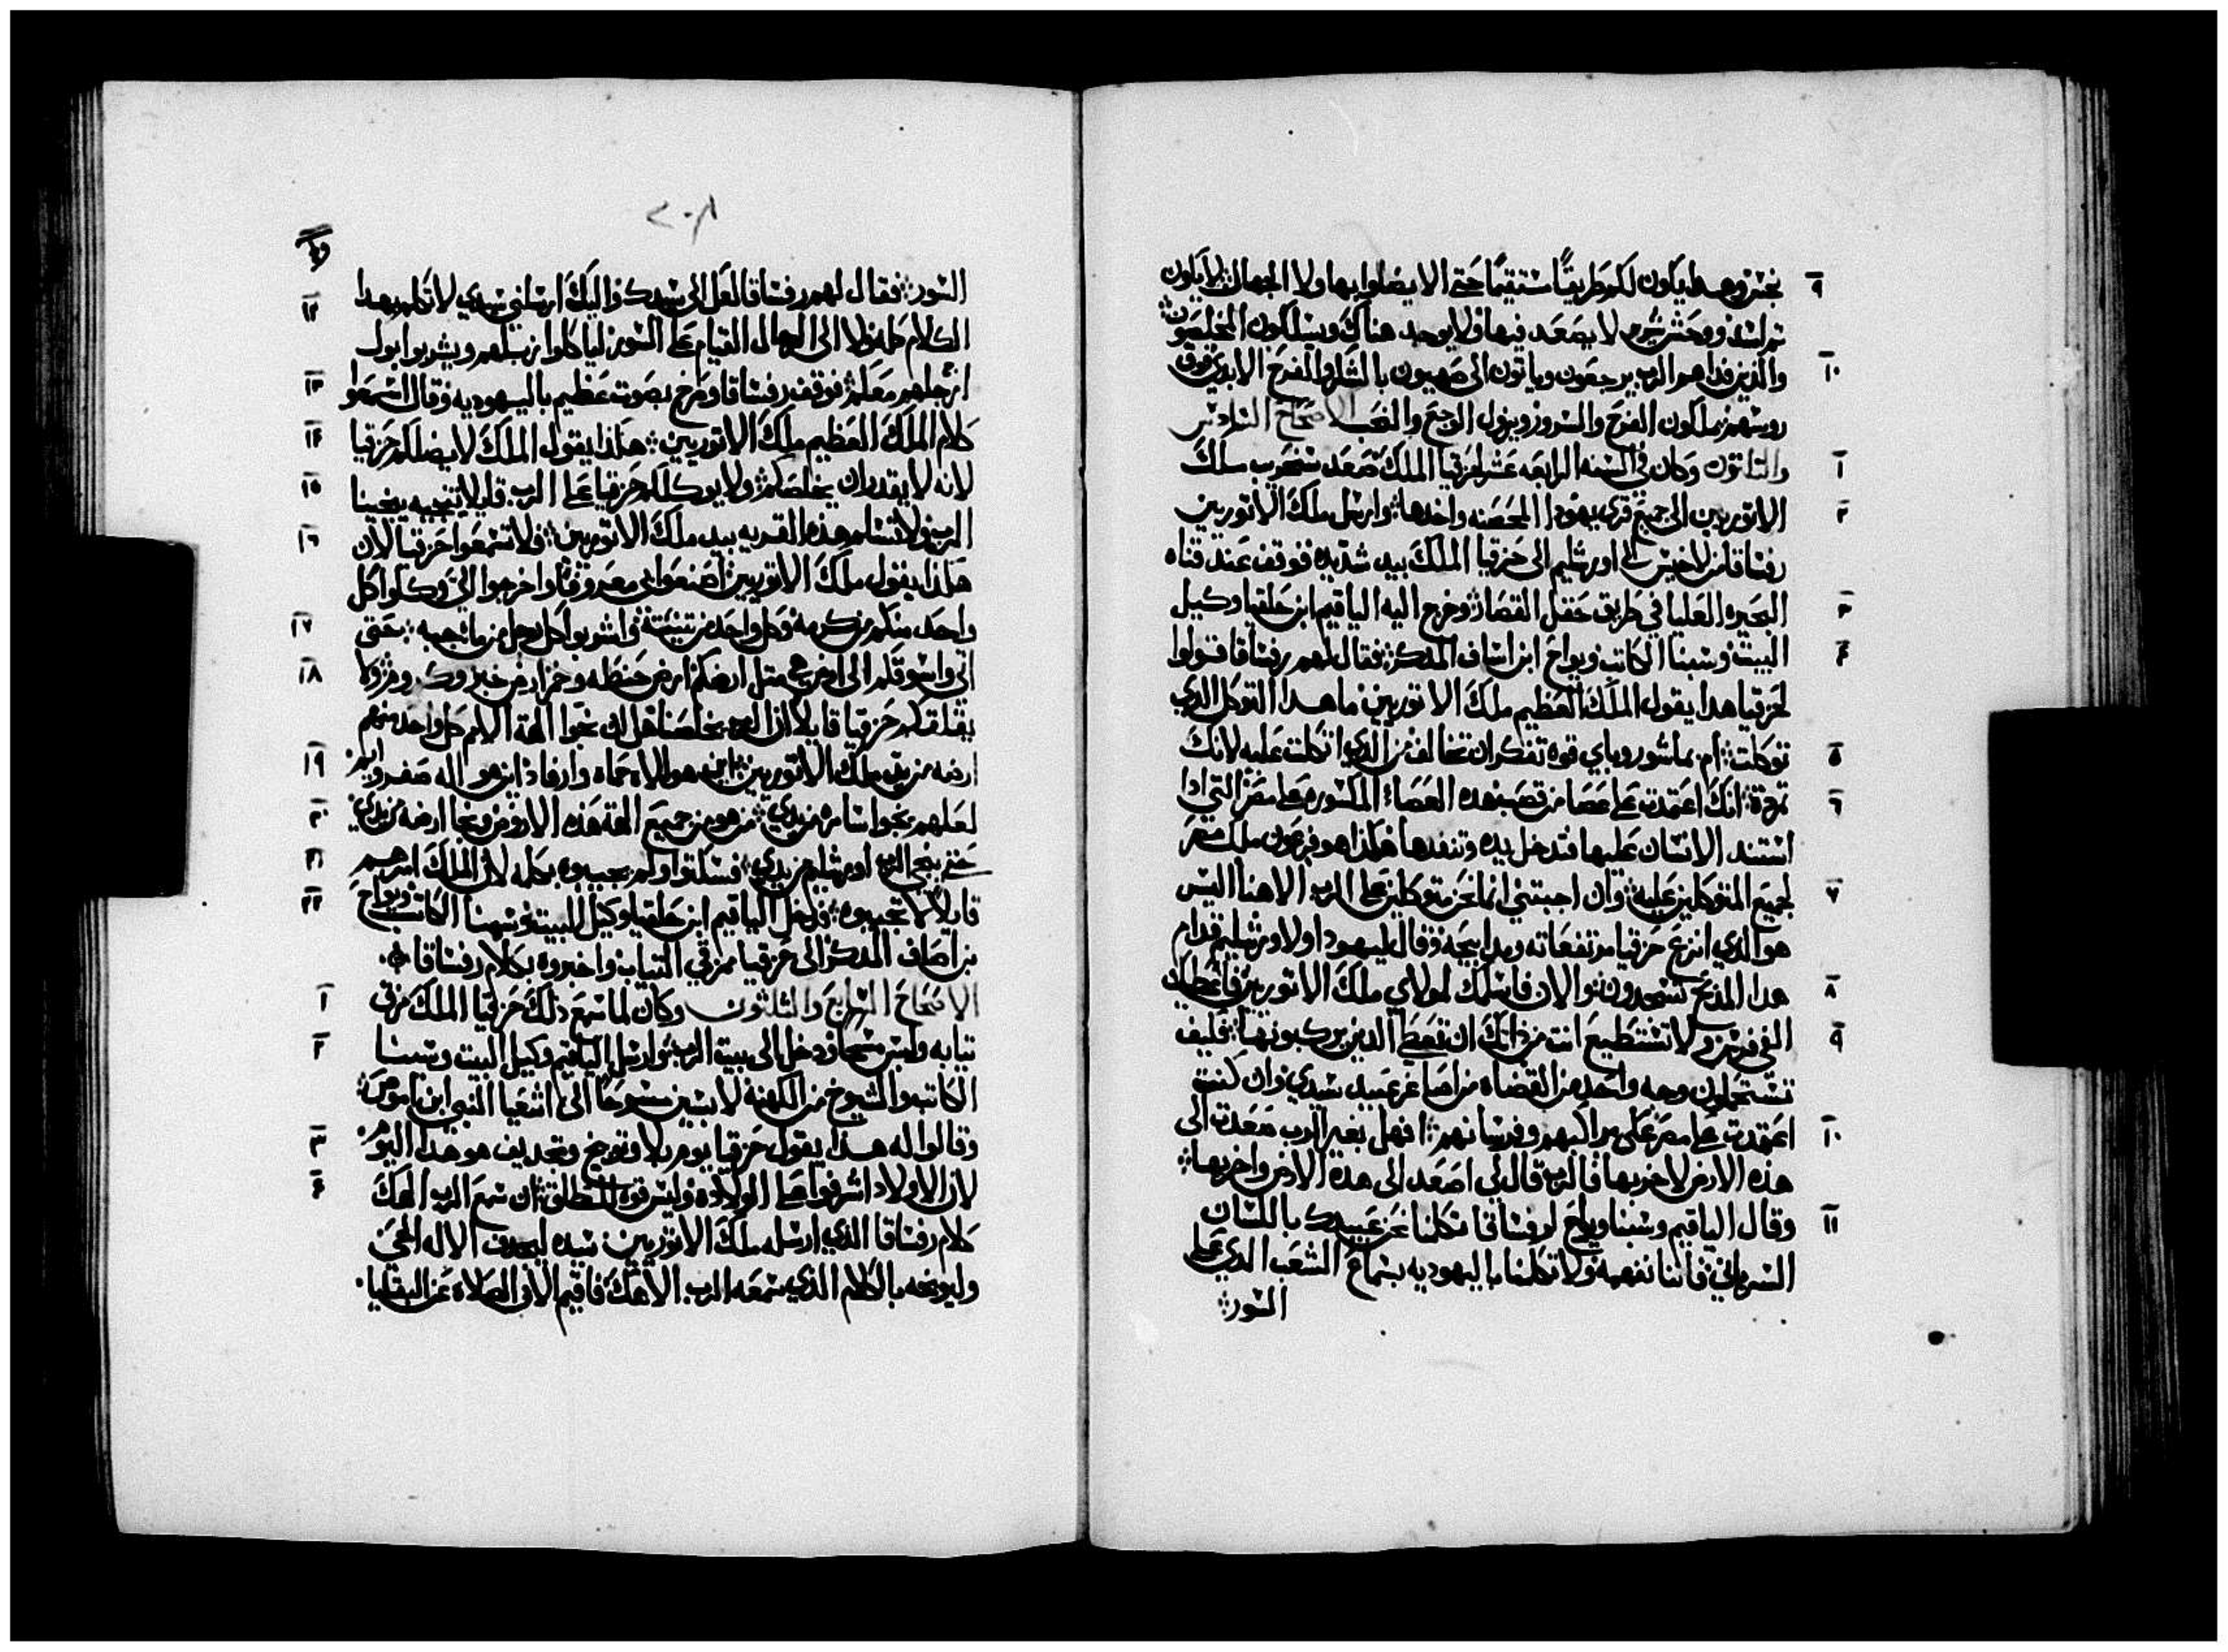 نجس وهدا يكون لكم طريقًا مستقيمًا حتى الا يضلوا بها ولا الجهال لا يكون
تم اسد ووحش شرير لا يصعد فيها ولا يوجد هناك ويسلكون المخلصون
والذين فداهم الرب يرجعون وياتون الى صهيون بالشكر والفرح الابدي فوق
روسهم يملكون الفرح والسرور ويزول الوجع والنحب الاصحاح السادس
والتلاتون وكان في السنه الرابعه عشر لحزقيا الملك صعد سنحريب ملك
الاتوريين الى جميع قرى يهودا المحصنه واخدها وارسل ملك الاتوريين
رفساقا من لاخيس الى اورشليم الى حزقيا الملك بيد شديده فوقف عند قناه
البحيره العليا في طريق حقل القصار وخرج اليه الياقيم ابن حلقيا وكيل
البيت وشبنا الكاتب ويواح ابن اساف المدكر فقال لهم رفساقا قولوا
لحزقيا هدا يقول الملك العظيم ملك الاتوريين ما هدا التوكل الدي
توكلت ام بما شوره وباي قوه تفكر ان تخالف من الدي اتكلت عليه لانك
تمردت انك اعتمدت على عصا من قصب هده العصاه المكسوره على مصر التي ادا
استند الانسان عليها فتدخل يده وتنفدها هكذا هو فرعون ملك مصر
لجميع المتوكلين عليه وان اجبتني انما نحن متوكلين على الرب الاهنا اليس
هو الدي انزع حزقيا مرتفعاته ومدابحه وقال ليهودا ولاورشليم قدام
هدا المدبح تسجدون والان فاسلمك لمولاي ملك الاتوريين فاعطيك
الفي فرس ولا تستطيع انت من ذاتك ان تعطي الدين يركبونها فكيف
تستحملون وجه واحد من القضاه من اصاغر عبيد سيدي وان كنت
اعتمدت على مصر على مراكبهم وفرسانهم افهل بغير الرب صعدت الى
هذه الارض لاخربها فالرب قال لي اصعد الى هده الارض واخربها
وقال الياقيم وشبنا ويواح لرفساقا تكلنا نحن عبيدك باللسان
السرياني فاننا نفهمه ولا تكلمنا باليهوديه بسماع الشعب الدي على
السور
٢٠٨
السور فقال لهم رفساقا لعل الى سيدك واليك ارسلني سيدي لاتكلم بهدا
الكلام كله ولا الى الرجال القيام على السور لياكلوا زبلهم ويشربوا بول
ارجلهم معكم فوقف رفساقا وصرخ بصوت عظيم باليهوديه وقال اسمعوا
كلام الملك العظيم ملك الاتوريين هكذا يقول الملك لا يضلكم حزقيا
لانه لا يقدر ان يخلصكم ولا يوكلكم حزقيا على الرب قايلا تنجيه ينجينا
الرب ولا تسلم هذه القريه بيد ملك الاتوريين فلا تسمعوا حزقيا لان
هكذا يقول ملك الاتوريين اصنعوا لي معروفًا واخرجوا الي وكلوا كل
واحد منكم من كرمه وكل واحد من تينته واشربوا كل رجل من ما جبه حتى
اتي واسوقكم الى ارض هي متل ارضكم ارض حنطه وخمر ارض خبز وكروم ولا
يقلقكم حزقيا قايلا ان الرب يخلصنا هل ان نجوا الهة الامم كل واحد منهم
ارضه من يد ملك الاتوريين اين هو الاه حماه وارفاد اين هو اله صفروايم
لعلهم نجوا سامره من يدي من هو من جميع الهة هذه الاراضي ونجا ارضه من يدي
حتى ينجي الرب اورشليم من يدي فسكتوا ولم يجيبوه بكله لان الملك امرهم
قايلا لا تجيبوه فدخل الياقيم ابن حلقيا وكيل البيت وشبنا الكاتب ويواح
بن اصاف المدكر الى حزقيا ممزقي التياب واخبروه بكلام رفساقا
الاصحاح السابع والثلثون وكان لما سمع ذلك حزقيا الملك مزق
تيابه ولبس مسحا ودخل الى بيت الرب وارسل الياقيم وكيل البيت وشبنا
الكاتب والشيوخ من الكهنه لابسين مسوحًا الى اشعيا النبي ابن اموص
وقالوا له هدا يقول حزقيا يوم بلا وتوبيخ وتجديف هو هدا اليوم
لان الاولاد اشرفوا على الولاده وليس قوه للطلق ان سمع الرب الهك
كلام رفساقا الدي ارسله ملك الاتوريين سيده ليجدف الاله الحي
وليوبخه بالكلام الذي سمعه الرب الاهك فاقيم الان الصلاه عن البقايا